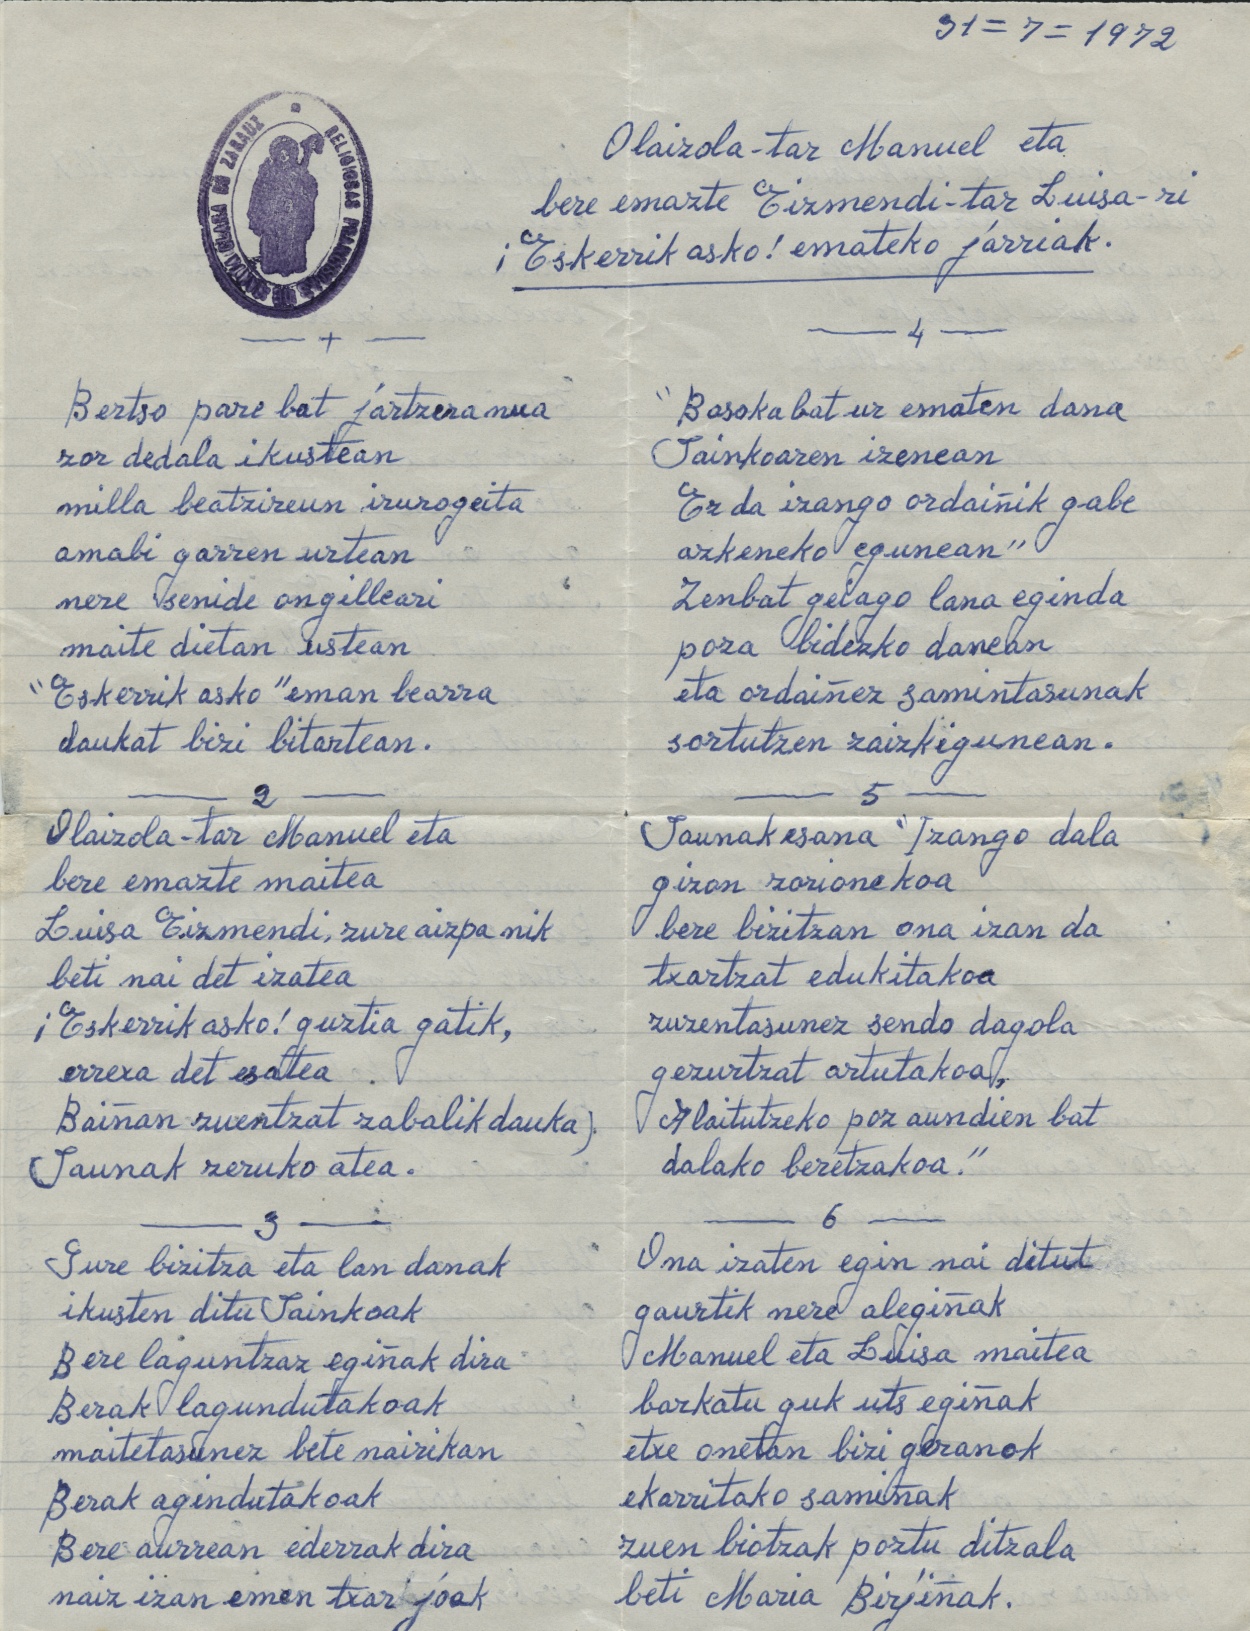 31=7=1972
RELIGIOSAS FRANCISCANAS DE SANTA CLARA DE ZARAUZ
Olaizola-tar Manuel eta
bere emazte Eizmendi-tar Luisa-ri
¡Eskerrik asko! emateko járriak.
+
Bertso pare bat jártzera nua
zor dedala ikustean
milla beatzireun irurogeita
amabi garren urtean
nere senide ongilleari
maite dietan ustean
"Eskerrik asko" eman bearra
daukat bizi bitartean.
2
Olaizola-tar Manuel eta
bere emazte maitea
Luisa Eizmendi, zure aizpa nik
beti nai det izatea
¡Eskerrik asko! guztia gatik,
errexa det esatea
Baiñan zuentzat zabalik dauka
Jaunak zeruko atea.
3
Gure bizitza eta lan danak
ikusten ditu Jainkoak
Bere laguntzaz egiñak dira
Berak lagundutakoak
maitetasunez bete nairikan
Berak agindutakoak
Bere aurrean ederrak dira
naiz izan emen txar jóak
4
"Basoka bat ur ematen dana
Jainkoaren izenean
Ez da izango ordaiñik gabe
azkeneko egunean"
Zenbat geiago lana eginda
poza bidezko danean
eta ordaiñez samintasunak
sortutzen zaizkigunean.
5
Jaunak esana "Izango dala
gizon zorionekoa
bere bizitzan ona izan da
txartzat edukitakoa
zuzentasunez sendo dagola
gezurtzat artutakoa,
Alaitutzeko poz aundien bat
dalako beretzakoa."
6
Ona izaten egin nai ditut
gaurtik nere alegiñak
Manuel eta Luisa maitea
barkatu guk uts egiñak
etxe onetan bizi geranok
ekarritako samiñak
zuen biotzak poztu ditzala
beti Maria Birjiñak.